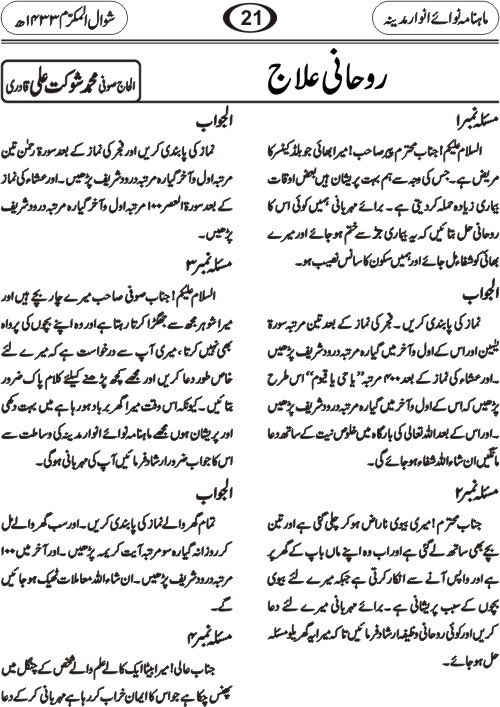 ماہنامہ نوائے انوار مدینہ
21
شوال المکرّم ۱۴۳۳ھ
روحانی علاج
الحاج صوفی محمد شوکت علی قادری
مسئلہ نمبر۱
السلام علیکم! جناب محترم پیر صاحب! میرا بھائی جو بلڈ کینسر کا
مریض ہے۔ جس کی وجہ سے ہم بہت پریشان ہیں بعض اوقات
بیماری زیادہ حملہ کردیتی ہے۔ برائے مہربانی ہمیں کوئی اس کا
روحانی حل بتائیں کہ یہ بیماری جڑ سے ختم ہوجائے اور میرے
بھائی کو شفاء مل جائے اور ہمیں سکون کا سانس نصیب ہو۔
الجواب
نماز کی پابندی کریں۔ فجر کی نماز کے بعد تین مرتبہ سورۃ
یٰسین اور اس کے اول و آخر میں گیارہ مرتبہ درود شریف پڑھیں
۔ اور عشاء کی نماز کے بعد ۴۰۰ مرتبہ ”یا حی یا قیوم“ اس طرح
پڑھیں کہ اس کے اول و آخر میں گیارہ مرتبہ درود شریف پڑھیں
۔ اور اس کے بعد اللہ تعالیٰ کی بارگاہ میں خلوص نیت کے ساتھ دعا
مانگیں ان شاء اللہ شفاء ہوجائے گی۔
مسئلہ نمبر۲
جناب محترم! میری بیوی ناراض ہوکر چلی گئی ہے اور تین
بچے بھی ساتھ لے گئی ہے اور اب وہ اپنے ماں باپ کے گھر پر
ہے اور واپس آنے سے انکار کرتی ہے جبکہ میرے لئے بیوی
بچوں کے سبب پریشانی ہے۔ برائے مہربانی میرے لئے دعا
کریں اور کوئی روحانی وظیفہ ارشاد فرمائیں تاکہ میرا یہ گھریلو مسئلہ
حل ہوجائے۔
الجواب
نماز کی پابندی کریں اور فجر کی نماز کے بعد سورۃ رحمٰن تین
مرتبہ اول و آخر گیارہ مرتبہ درود شریف پڑھیں۔ اور عشاء کی نماز
کے بعد سورۃ العصر ۱۰۰ مرتبہ اول و آخر گیارہ مرتبہ درود شریف
پڑھیں۔
مسئلہ نمبر۳
السلام علیکم! جناب صوفی صاحب میرے چار بچے ہیں اور
میرا شوہر مجھ سے جھگڑا کرتا رہتا ہے اور وہ اپنے بچوں کی پرواہ
بھی نہیں کرتا، میری آپ سے درخواست ہے کہ میرے لئے
خاص طور دعا کریں اور مجھے کچھ پڑھنے کیلئے کلام پاک ضرور
بتائیں۔ کیونکہ اس وقت میرا گھر برباد ہورہا ہے میں بہت دکھی
اور پریشان ہوں مجھے ماہنامہ نوائے انوار مدینہ کی وساطت سے
اس کا جواب ضرور ارشاد فرمائیں آپ کی مہربانی ہوگی۔
الجواب
تمام گھر والے نماز کی پابندی کریں۔ اور سب گھر والے مل
کر روزانہ گیارہ سو مرتبہ آیت کریمہ پڑھیں۔ اور آخر میں ۱۰۰
مرتبہ درود شریف پڑھیں۔ ان شاء اللہ معاملات ٹھیک ہوجائیں
گے۔
مسئلہ نمبر۴
جناب عالی! میرا بیٹا ایک کالے علم والے شخص کے چنگل میں
پھنس چکا ہے جو اس کا ایمان خراب کررہا ہے مہربانی کرکے دعا